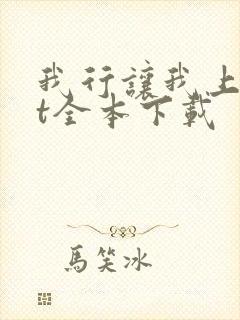 我行讓我上
t全本下載
馬笑冰